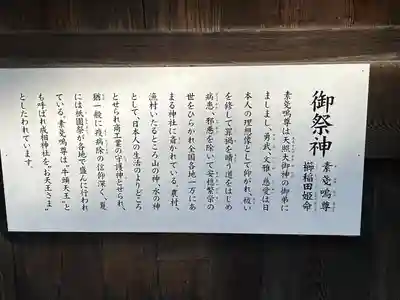 御祭神
素戔嗚尊
櫛稲田姫命
素戔嗚尊は天照大御神の御弟に
ましまし、勇武、文雅、慈愛は日
本人の理想像として仰がれ、祓い
を修して罪禍を晴う道をはじめ
病患、邪悪を除いて安穏繁栄の
世をひらかれ全国各地一万にあ
まる神社に斎かれている。農村
漁村いたるところ山の神、水の神
として、日本人の生活のよりどころ
とせられ商工業の守護神とせられ、
猶一般に疫病除の信仰深く、夏
には祇園祭が各地で盛んに行われ
ている。素戔嗚尊は"牛頭天王"と
も呼ばれ戒相神社を"お天王さま"
としたわれています。